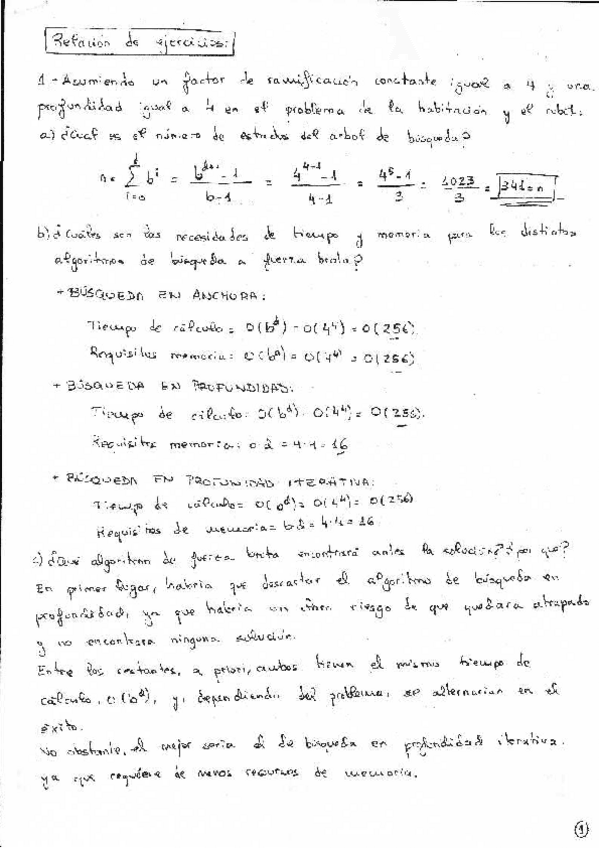 Relación de ejercicios:
1 - Asumiendo un factor de ramificación constante igual a 4 y una
profundidad igual a 4 en el problema de la habitación y el robot:
a) ¿Cuál es el número de estados del arbol de búsqueda?
n = Σ_{i=0}^{d} b^i = (b^{d+1} - 1)/(b-1) = (4^{4-1} - 1)/(4-1) = (4^5 - 1)/3 = 1023/3 = 341 = n
b) ¿Cuáles son las necesidades de tiempo y memoria para los distintos
algoritmos de búsqueda a fuerza bruta?
+ BÚSQUEDA EN ANCHURA:
Tiempo de cálculo = O(b^d) = O(4^4) = O(256)
Requisitos memoria: O(b^d) = O(4^4) = O(256)
+ BÚSQUEDA EN PROFUNDIDAD:
Tiempo de cálculo: O(b^d) = O(4^4) = O(256).
Requisitos memoria: b·d = 4·4 = 16
+ BÚSQUEDA EN PROFUNIDAD ITERATIVA:
Tiempo de cálculo = O(b^d) = O(4^4) = O(256)
Requisitos de memoria = b·d = 4·4 = 16
c) ¿Qué algoritmo de fuerza bruta encontrará antes la solución? ¿por qué?
En primer lugar, habría que descartar el algoritmo de búsqueda en
profundidad, ya que habría un riesgo de que quedara atrapado
y no encontrara ninguna solución.
Entre los restantes, a priori, ambos tienen el mismo tiempo de
cálculo, O(b^d), y, dependiendo del problema, se alternarían en el
éxito.
No obstante, el mejor sería el de búsqueda en profundidad iterativa.
ya que requiere de menos recursos de memoria.
1